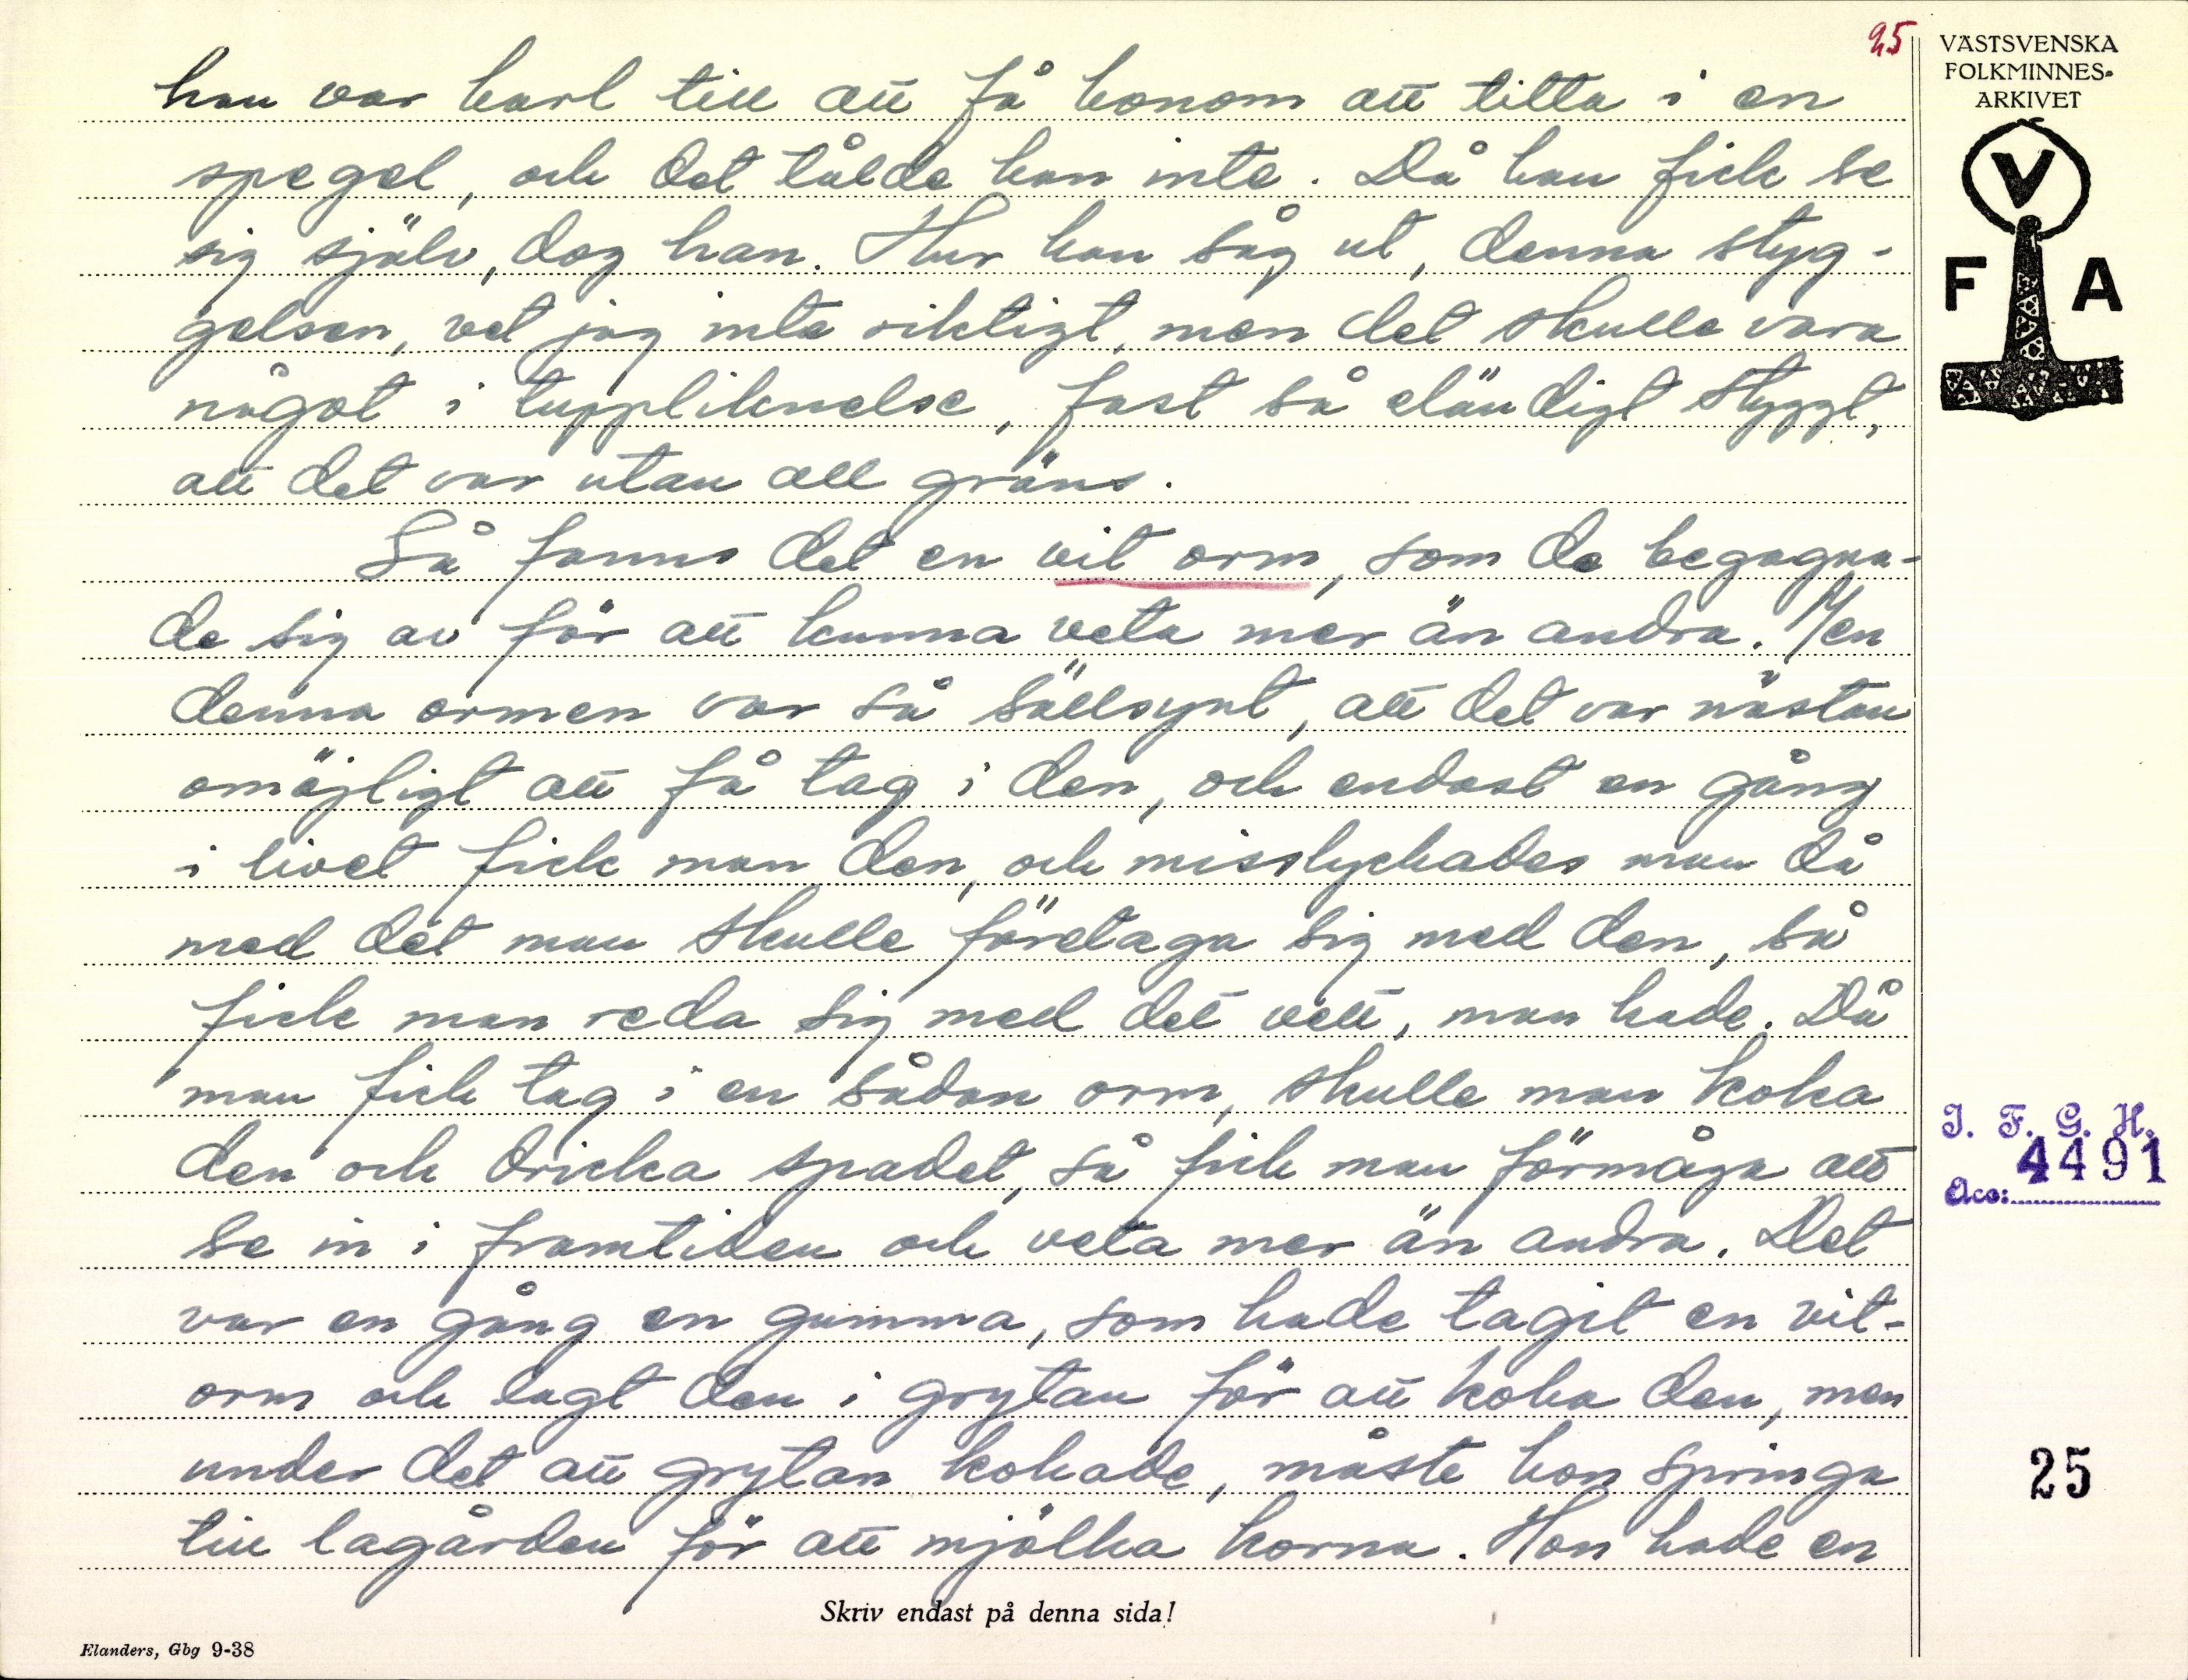 25
VÄSTSVENSKA
FOLKMINNES-
ARKIVET
V
F A
han var karl till att få honom att titta i en
spegel, och det tålde han inte. Då han fick se
sig själv, dog han. Hur han såg ut, denna styg-
gelsen, vet jag inte riktigt, men det skulle vara
något i tuppliknelse, fast så eländigt styggt,
att det var utan all gräns.
Så fanns det en vit orm, som de begagna-
de sig av för att kunna veta mer än andra. Men
denna ormen var så sällsynt, att det var nästan
omöjligt att få tag i den, och endast en gång
i livet fick man den, och misslyckades man då
med det man skulle företaga sig med den, så
fick man reda sig med det vett, man hade. Då
man fick tag i en sådan orm, skulle man koka
den och dricka spadet, så fick man förmåga att
se in i framtiden och veta mer än andra. Det
var en gång en gumma, som hade tagit en vit-
orm och lagt den i grytan för att koka den, men
under det att grytan kokade, måste hon springa
till lagården för att mjölka korna. Hon hade en
I. F. G. H.
Acc: 4491
25
Skriv endast på denna sida!
Elanders, Gbg 9-38